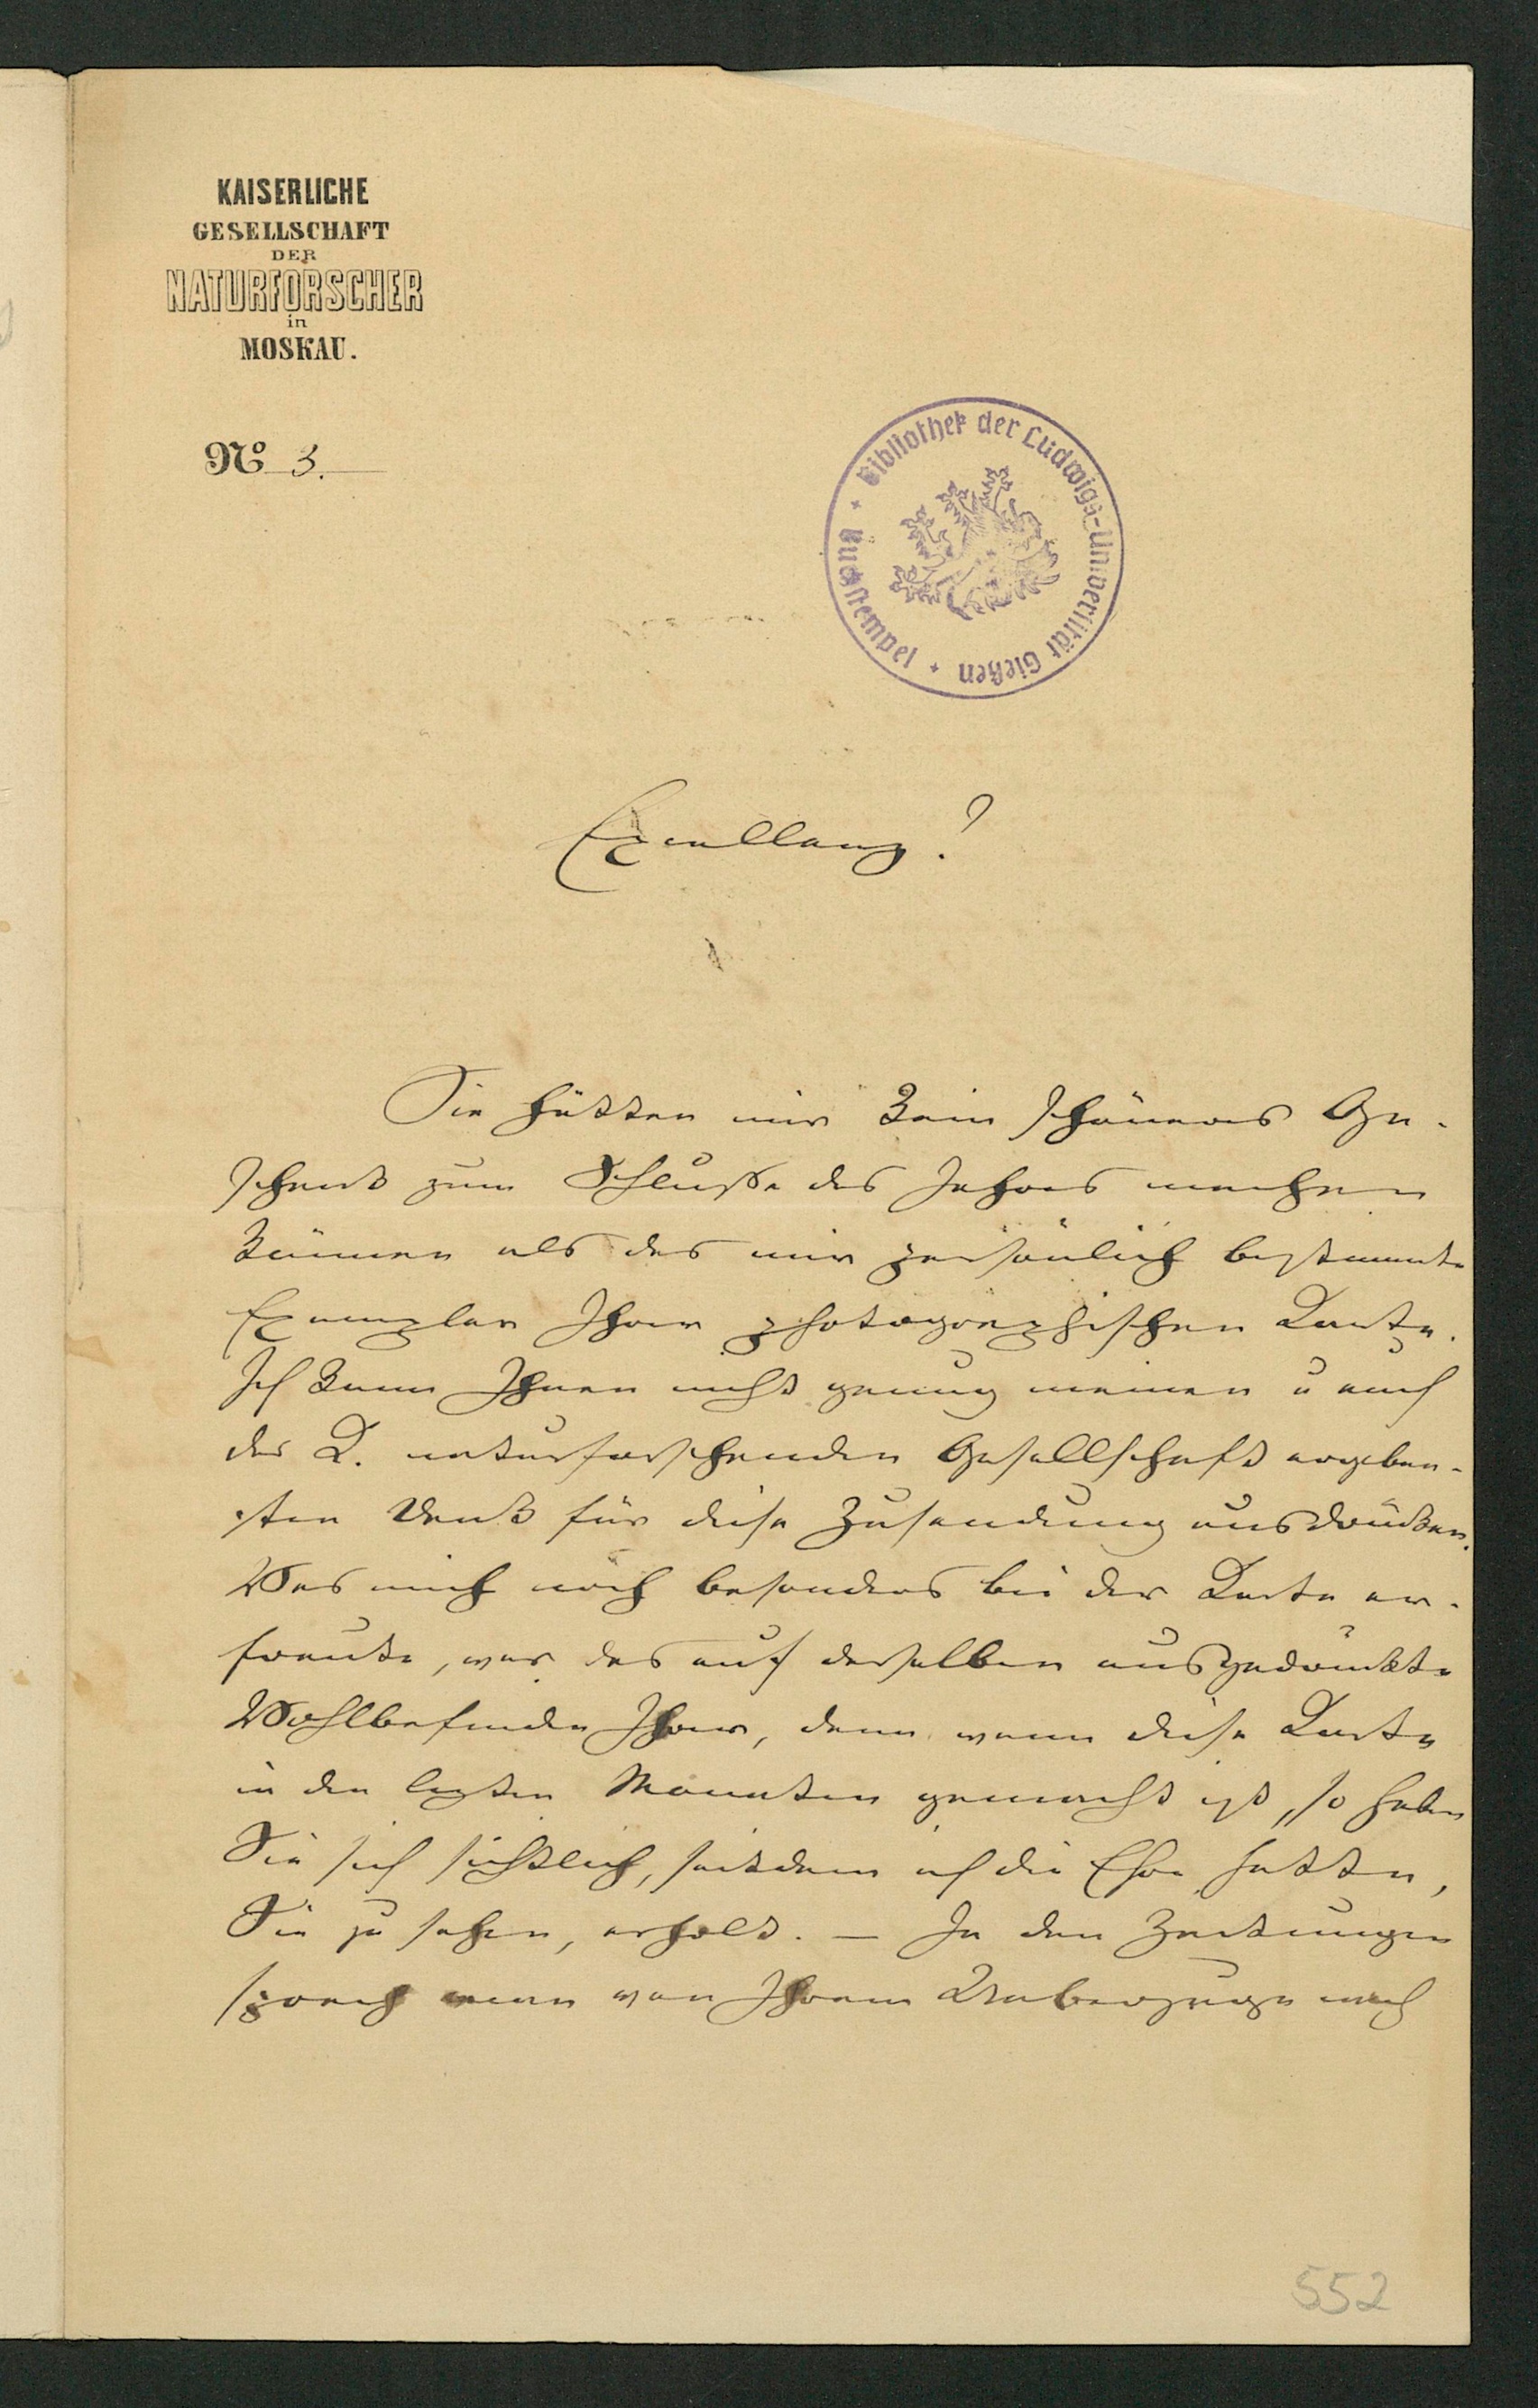 KAISERLICHE
GESELLSCHAFT
DER
NATURFORSCHER
in
MOSKAU.
No 3.
Bibliothek der Ludwigs-Universität Gießen + Buchstempel +
Excellenz!
Sie hätten mir kein schöneres Ge-
schenk zum Schluße des Jahres machen
können als das mir persönlich bestimmte
Exemplar Ihrer photographischen Karte.
Ich kann Ihnen nicht genug meinen u auch
der K. naturforschenden Gesellschaft ergeben-
sten Dank für diese Zusendung ausdrücken.
Was mich noch besonders bei der Karte er-
freute, war das auf derselben ausgedrückte
Wohlbefinden Ihrer, denn wenn diese Karte
in den lezten Monaten gemacht ist, so haben
Sie sich sichtlich, seitdem ich die Ehre hatte,
Sie zu sehen, erholt. — In den Zeitungen
sprach man von Ihrem nach
552